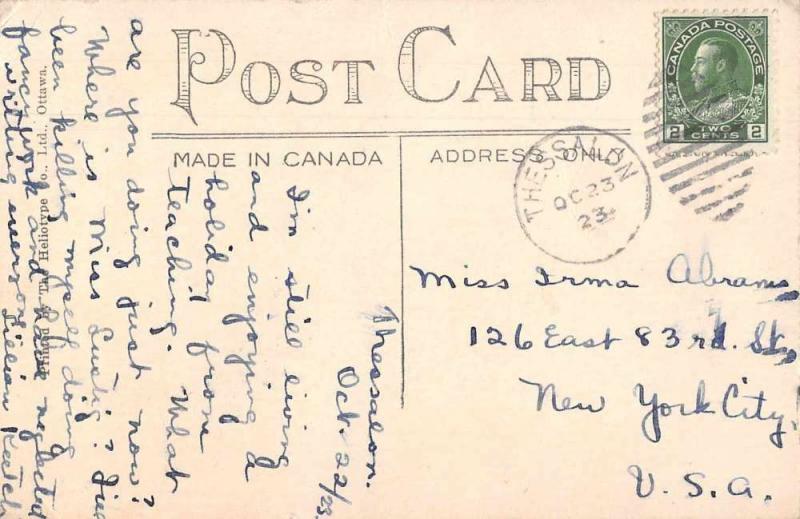 POST CARD
CANADA POSTAGE
2 TWO CENTS 2
MADE IN CANADA
ADDRESS ONLY
THESSALON
OC 23
23
Miss Irma Abrams
126 East 83rd. St.,
New York City,
U.S.A.
Thessalon.
Oct. 22/23.
I'm still living
and enjoying a
holiday from
teaching. What
are you doing just now?
Where is Miss Lustig? I've
been killing myself doing
fancywork and have neglected
writing everyone.
Lillian
Printed by The Heliotype Co., Ltd., Ottawa.